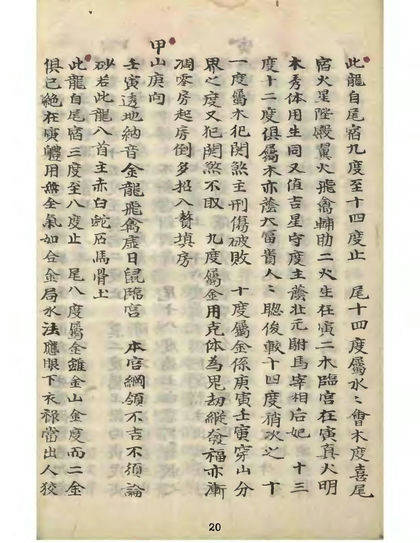 此龍自尾宿九度至十四度止　尾十四度屬水水會木度喜尾
宿火星陞殿翼火飛禽輔助二火生在寅二木臨宮在寅真火明
本秀体用生同又值吉星守度主䕃壯元駙馬宰相后妃　十三
度十二度俱屬木亦䕃大富貴人人聰俊較十四度稍次之　十
一度屬木犯関煞主刑傷破敗　十度屬金係庚寅壬寅穿山分
界之度又犯関煞不取　九度屬金用克体為鬼刼縱發福亦漸
凋零房起房倒多招入贅填房
甲山庚向
壬寅透地納音金龍飛禽虛日鼠臨宮　本宮綱領不吉不須論
砂若此龍八首主赤白蛇石馬骨土
此龍自尾宿三度至八度止　尾八度屬金雖金山金度而二金
俱已絕在寅軆用無全氣如合金局水法應眼下衣祿當出人狡
20